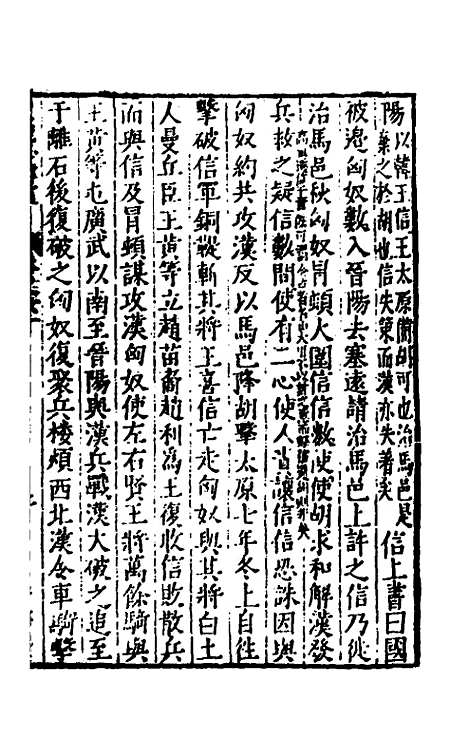 陽以韓王信王太原備胡可也治馬邑是
棄之於胡也信失策而漢亦失著矣
信上書曰國
被邊匈奴數入晉陽去塞遠請治馬邑上許之信乃徙
治馬邑秋匈奴冒頓大圍信信數使使胡求和解漢發
兵救之疑信數間使有二心使人責讓信信恐誅因與
匈奴約共攻漢反以馬邑降胡擊太原七年冬上自往
擊破信軍銅鞮斬其將王喜信亡走匈奴與其將白土
人曼丘臣王黃等立趙苗裔趙利為王復收信敗散兵
而與信及冒頓謀攻漢匈奴使左右賢王將萬餘騎與
王黃等屯廣武以南至晉陽與漢兵戰漢大破之追至
于離石後復破之匈奴復聚兵樓煩西北漢令車騎擊